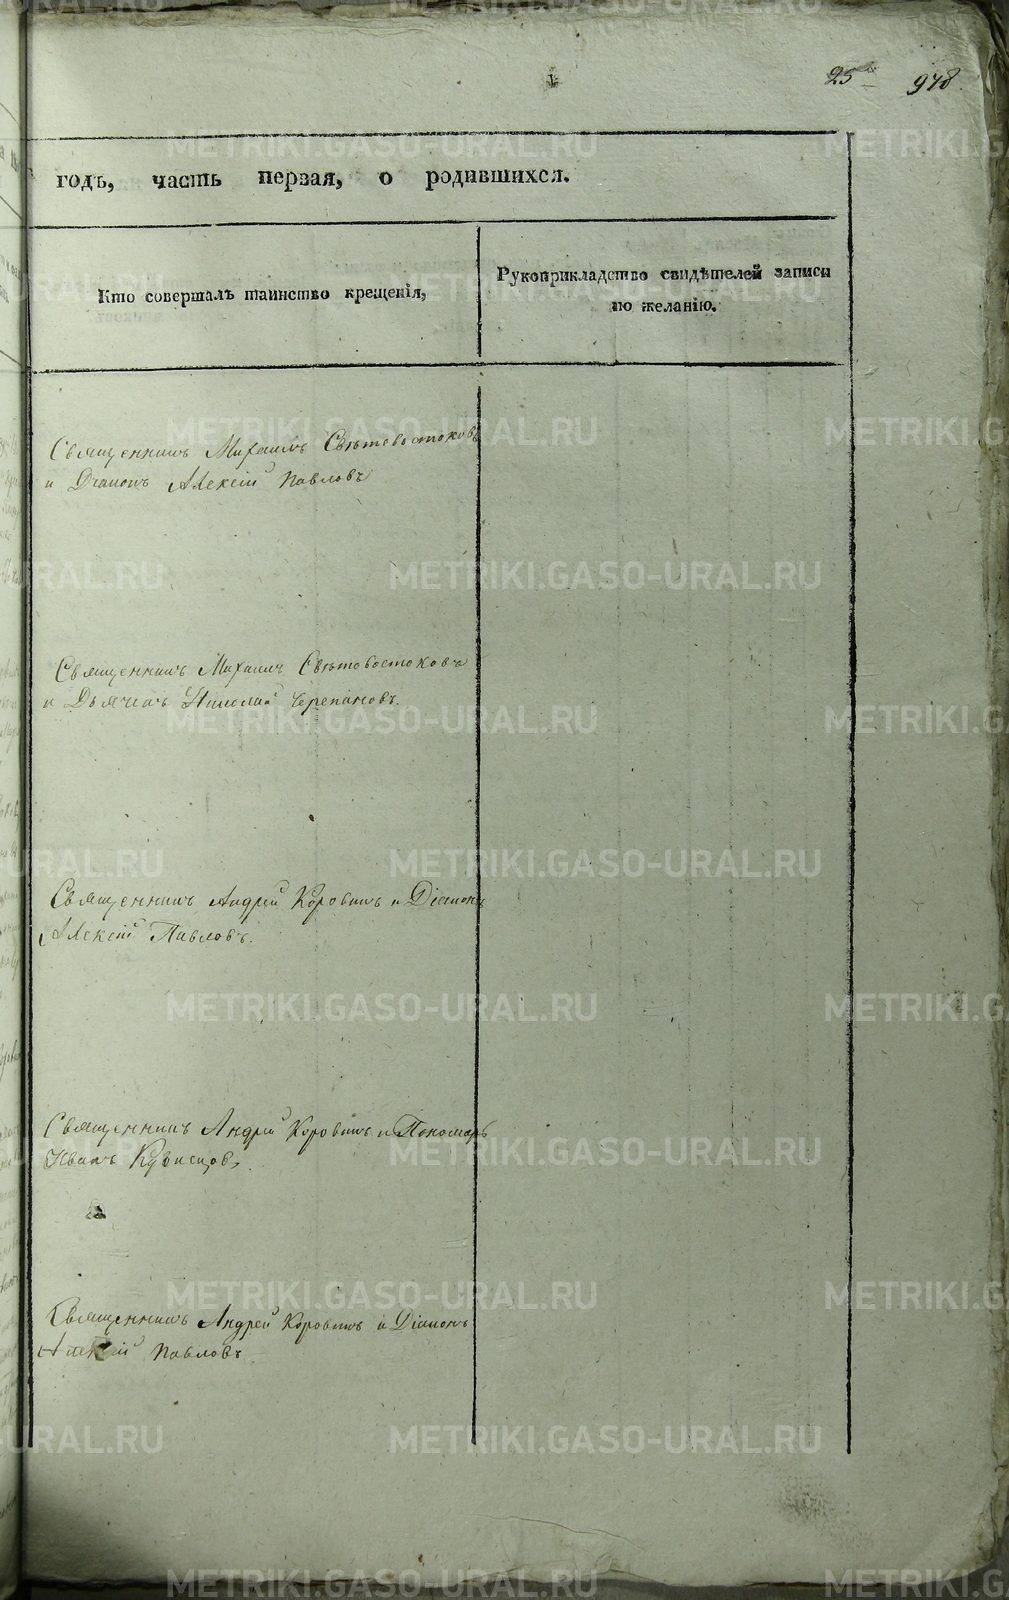 25
978.
годъ, часть первая, о родившихся.
Кто совершалъ таинство крещенія,
Рукоприкладство свидѣтелей записи
по желанію.
Священникъ Михаилъ Свѣтовостоковъ
и Діаконъ Алексій Павловъ
Священникъ Михаилъ Свѣтовостоковъ
и Дьячекъ Николай Черепановъ.
Священникъ Андрей Коровинъ и Діаконъ
Алексій Павловъ.
Священникъ Андрей Коровинъ и Пономарь
Иванъ Кузнецовъ.
Священникъ Андрей Коровинъ и Діаконъ
Алексій Павловъ
METRIKI.GASO-URAL.RU